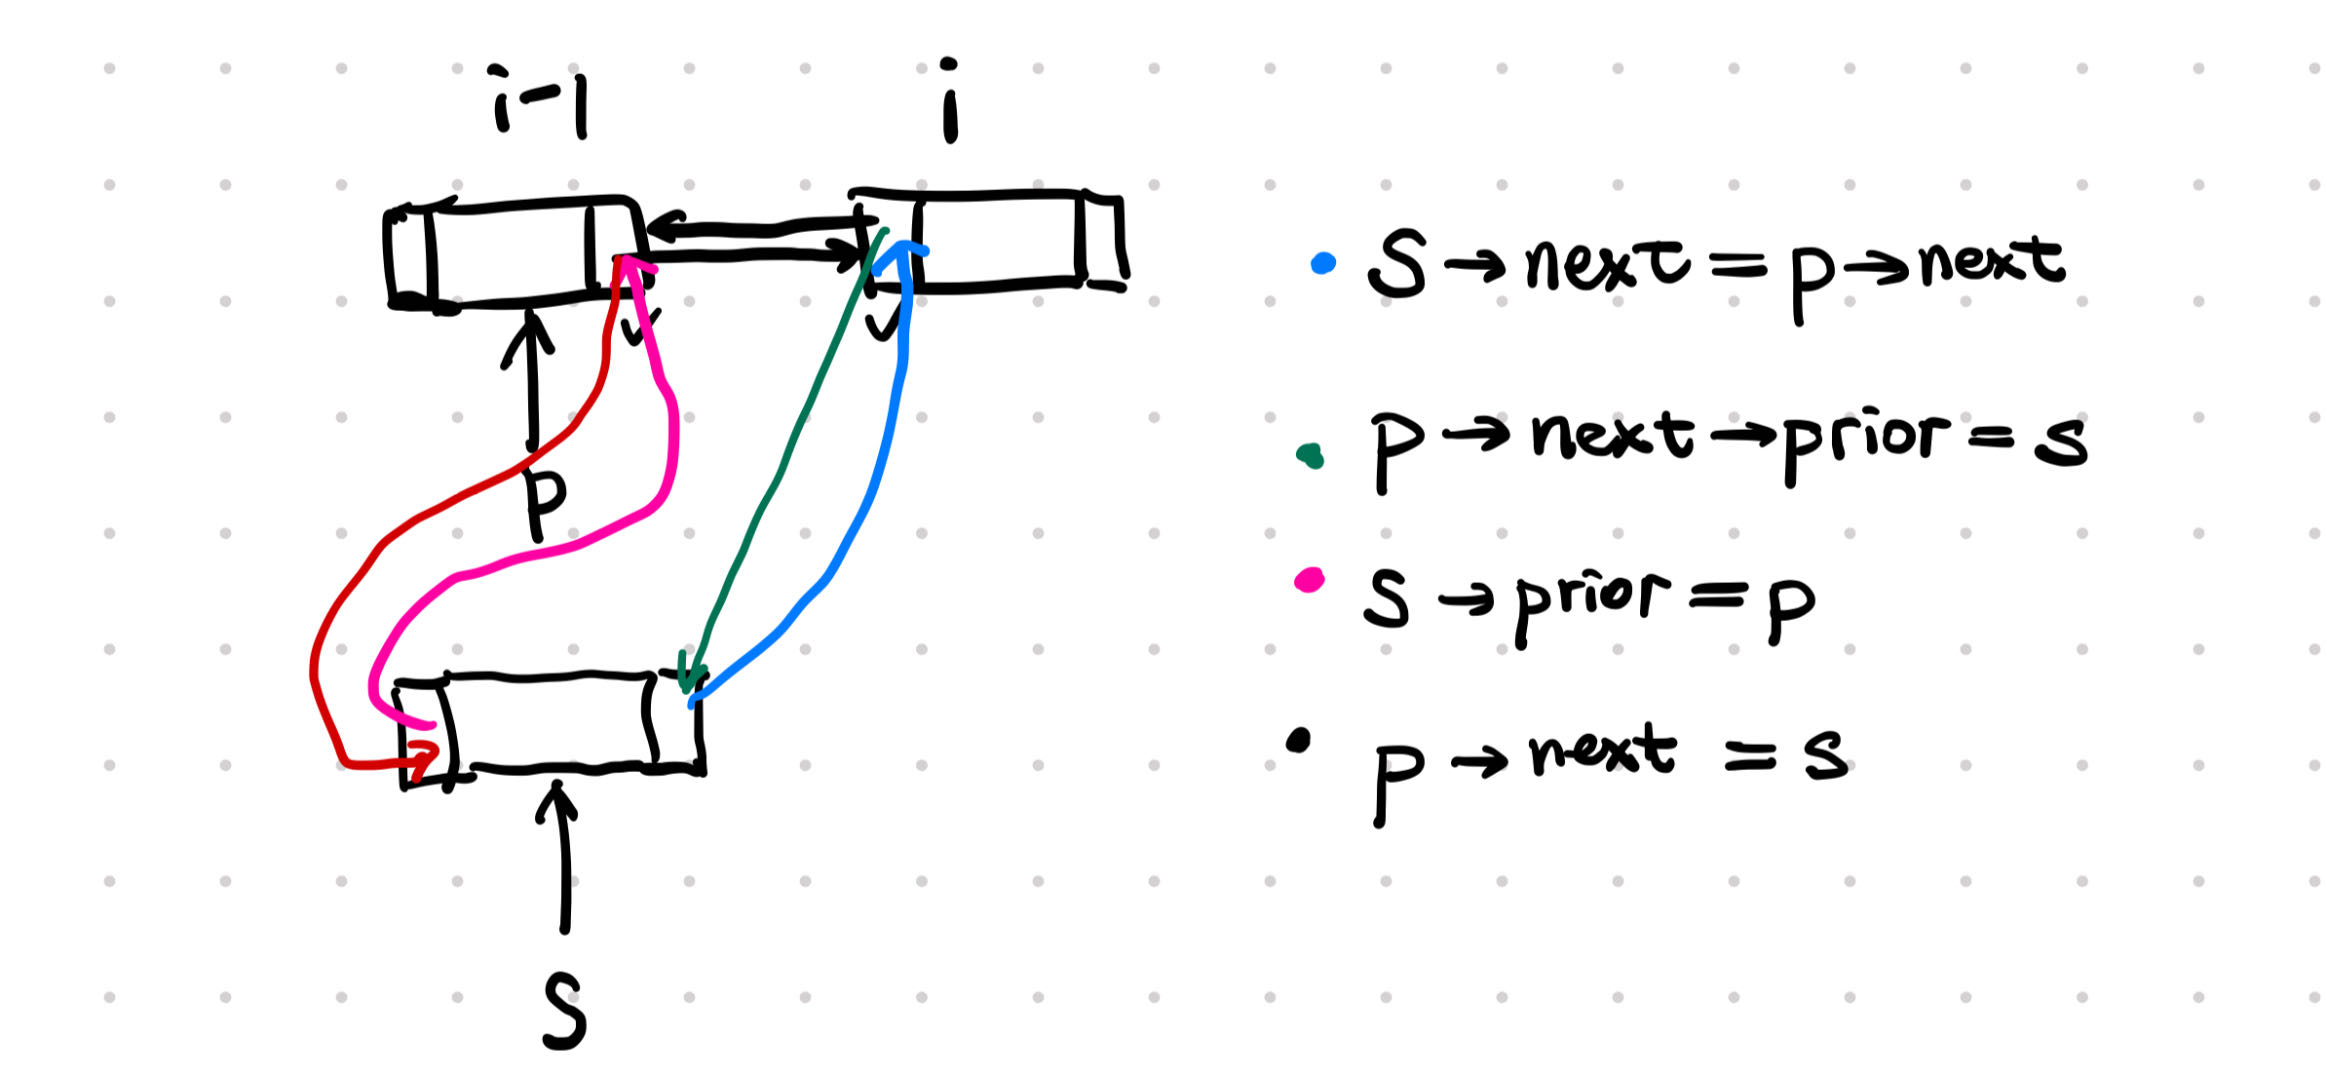 i-1
i
S→next=p→next
p→next→prior=s
p
s→prior=p
p→next=s
S